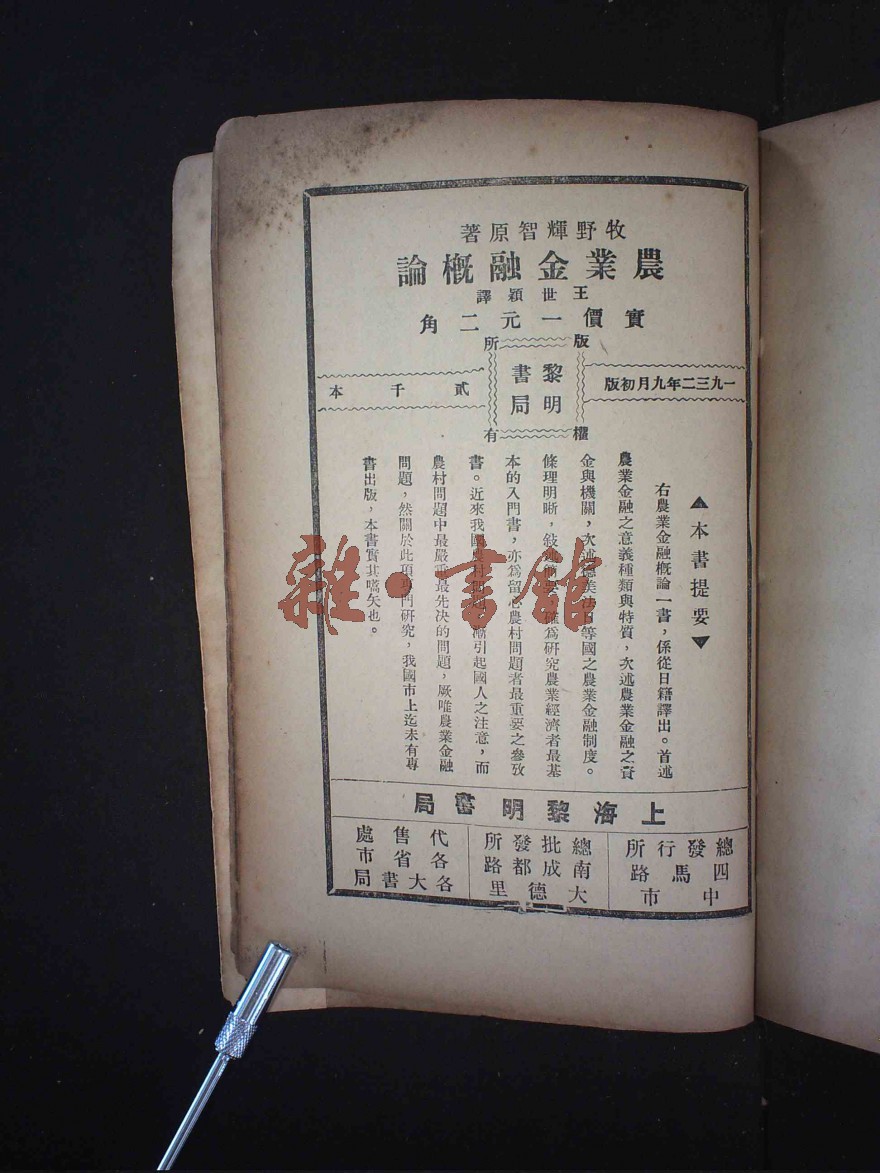 牧野輝智原著
農業金融槪論
王世穎譯
實價一元二角
版權所有
黎明書局
一九三二年九月初版
貳千本
▲本書提要▼
右農業金融槪論一書，係從日籍譯出。首述
農業金融之意義種類與特質，次述農業金融之資
金與機關，次述德美法日等國之農業金融制度。
條理明晰，敍述簡要，確爲研究農業經濟者最基
本的入門書，亦爲留心農村問題者最重要之參攷
書。近來我國農村問題，漸引起國人之注意，而
農村問題中最嚴重最先決的問題，厥唯農業金融
問題，然關於此項專門研究，我國市上迄未有專
書出版，本書實其嚆矢也。
上海黎明書局
總發行所
四馬路
中市
總批發所
南成都路
大德里
代售處
各省市
各大書局
雜·書館